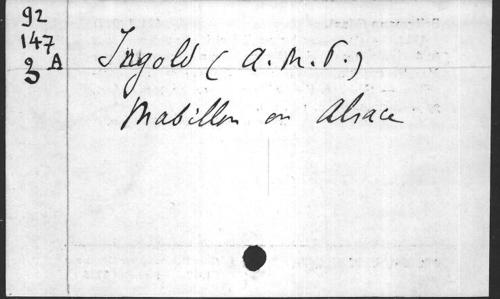 92
147
3 A
Ingold (A.M.P.)
Mabillon en Alsace